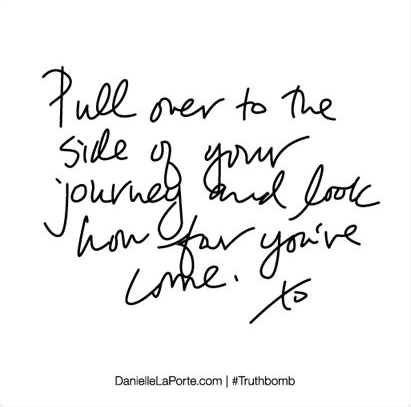 Pull over to the
side of your
journey and look
how far you've
come.
xo
DanielleLaPorte.com | #Truthbomb